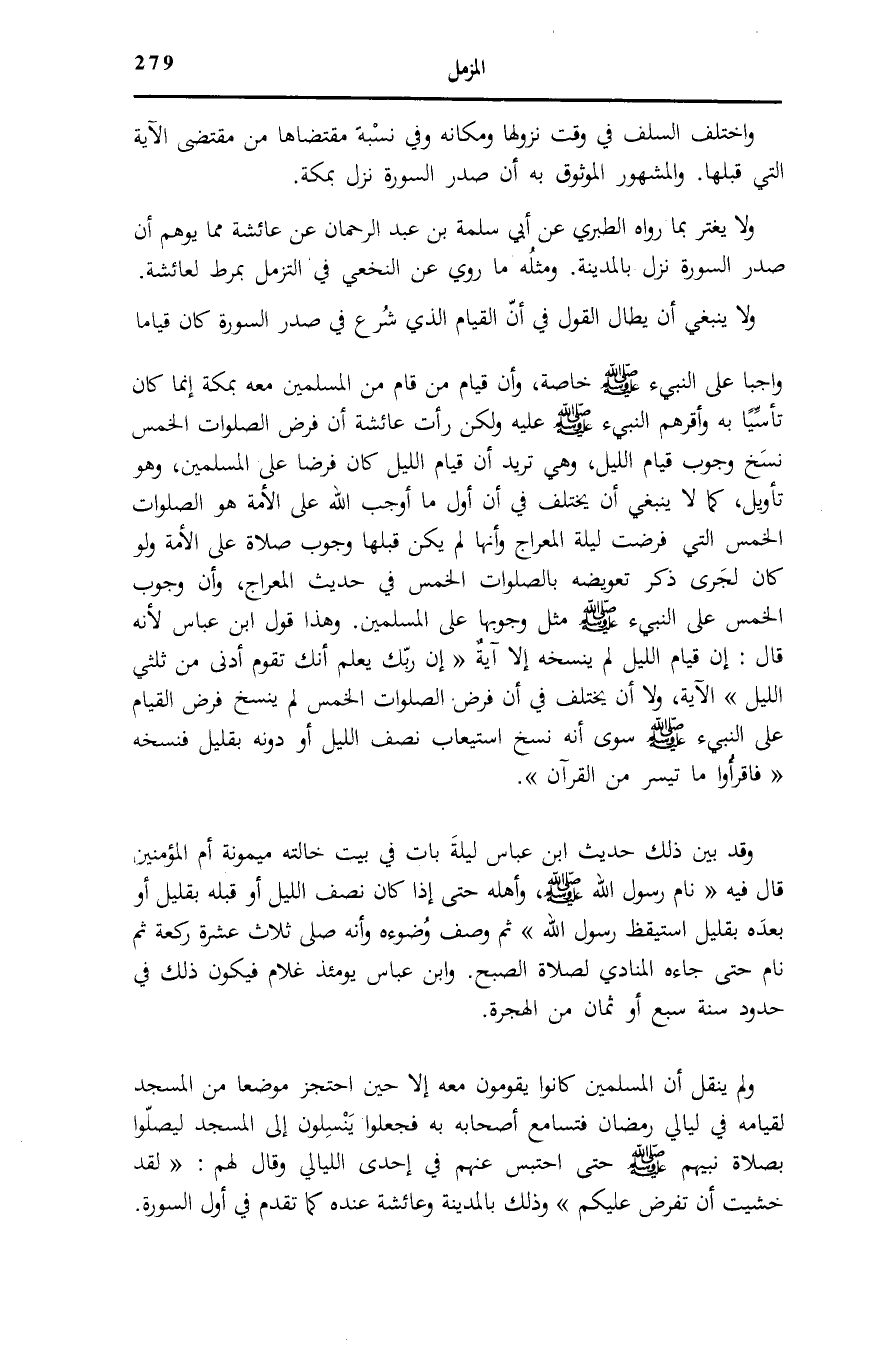 279
المزمل
واختلف السلف في وقت نزولها ومكانه وفي نسْبة مقتضاها من مقتضى الآية
التي قبلها. والمشهور الموثوق به أن صدر السورة نزل بمكة.
ولا يغتر بما رواه الطبري عن أبي سلمة بن عبد الرحمان عن عائشة مما يوهم أن
صدر السورة نزل بالمدينة. ومثلُه ما روي عن النخعي في التزمل بمرط لعائشة.
ولا ينبغي أن يطال القول في أنّ القيام الذي شُرع في صدر السورة كان قياما
واجبا على النبيء ﷺ خاصة، وأن قيام من قام من المسلمين معه بمكة إنما كان
تأسِّيًا به وأقرهم النبيء ﷺ عليه ولكن رأت عائشة أن فرض الصلوات الخمس
نسَخ وجوب قيام الليل، وهي تريد أن قيام الليل كان فرضا على المسلمين، وهو
تأويل، كما لا ينبغي أن يختلف في أن أول ما أوجب الله على الأمة هو الصلوات
الخمس التي فرضت ليلة المعراج وأنها لم يكن قبلها وجوب صلاة على الأمة ولو
كان لجَرى ذكر تعويضه بالصلوات الخمس في حديث المعراج، وأن وجوب
الخمس على النبيء ﷺ مثل وجوبها على المسلمين. وهذا قول ابن عباس لأنه
قال : إن قيام الليل لم ينسخه إلا آيةٌ « إن ربّك يعلم أنك تقوم أدنى من ثلثي
الليل » الآية، ولا أن يختلف في أن فرض الصلوات الخمس لم ينسخ فرض القيام
على النبيء ﷺ سوى أنه نسخ استيعاب نصف الليل أو دونه بقليل فنسخه
« فاقرأُوا ما تيسر من القرآن ».
وقد بين ذلك حديث ابن عباس ليلةَ بات في بيت خالته ميمونة أم المؤمنين
قال فيه « نام رسول الله ﷺ، وأهله حتى إذا كان نصف الليل أو قبله بقليل أو
بعدَه بقليل استيقظ رسول الله » ثم وصف وُضوءه وأنه صلى ثلاث عشرة ركعة ثم
نام حتى جاءه المنادي لصلاة الصبح. وابن عباس يومئذ غلام فيكون ذلك في
حدود سنة سبع أو ثمان من الهجرة.
ولم ينقل أن المسلمين كانوا يقومون معه إلا حين احتجز موضعا من المسجد
لقيامه في ليالي رمضان فتسامع أصحابه به فجعلوا يَنْسِلون إلى المسجد ليصلّوا
بصلاة نبيهم ﷺ حتى احتبس عنهم في إحدى الليالي وقال لهم : « لقد
خشيت أن تفرض عليكم » وذلك بالمدينة وعائشة عنده كما تقدم في أول السورة.